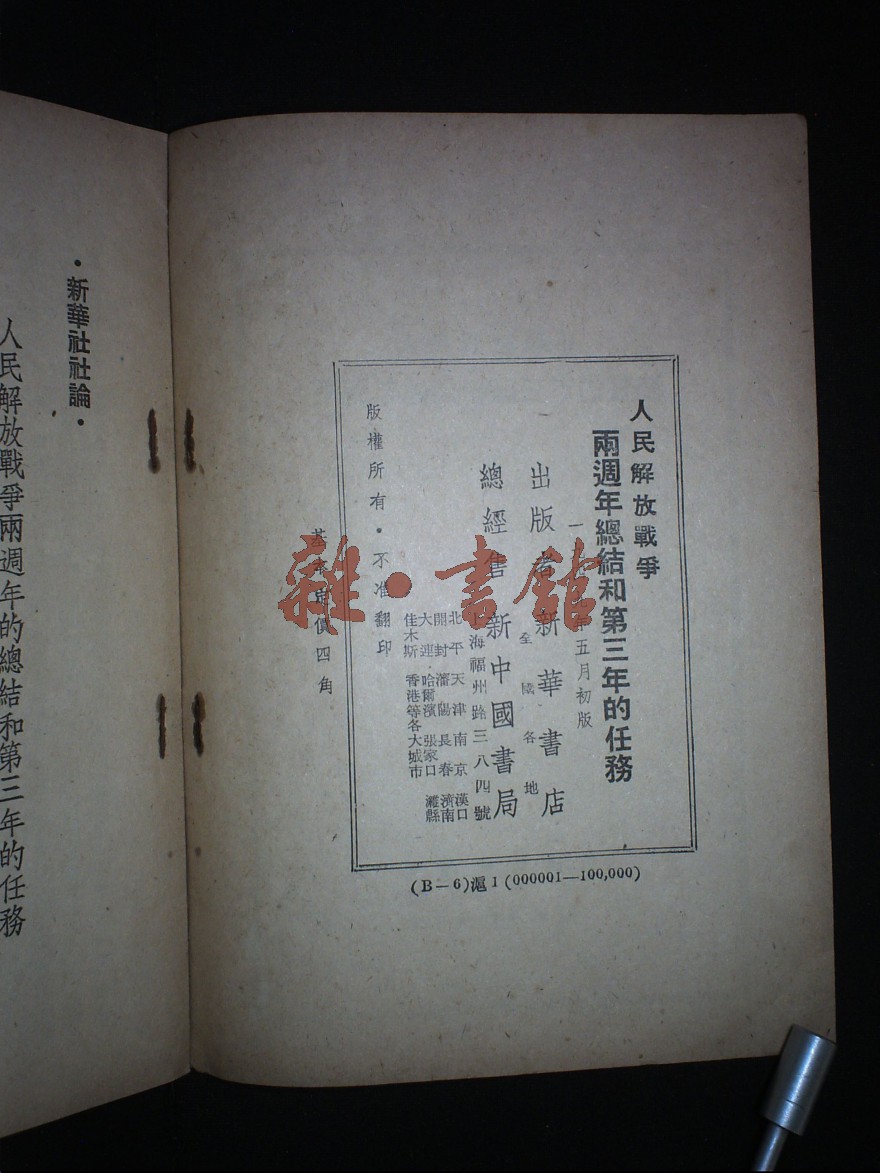 人民解放戰爭
兩週年總結和第三年的任務
一 年五月初版
出版者 新華書店
全國各地
總經售 新中國書局
上海福州路三八四號
北平 天津 南京 漢口
開封 瀋陽 長春 濟南
大連·哈爾濱 張家口 濰縣
佳木斯 香港等各大城市
版權所有·不准翻印
基本定價四角
(B—6)滬1(000001—100,000)
·新華社社論·
人民解放戰爭兩週年的總結和第三年的任務
雜·書館